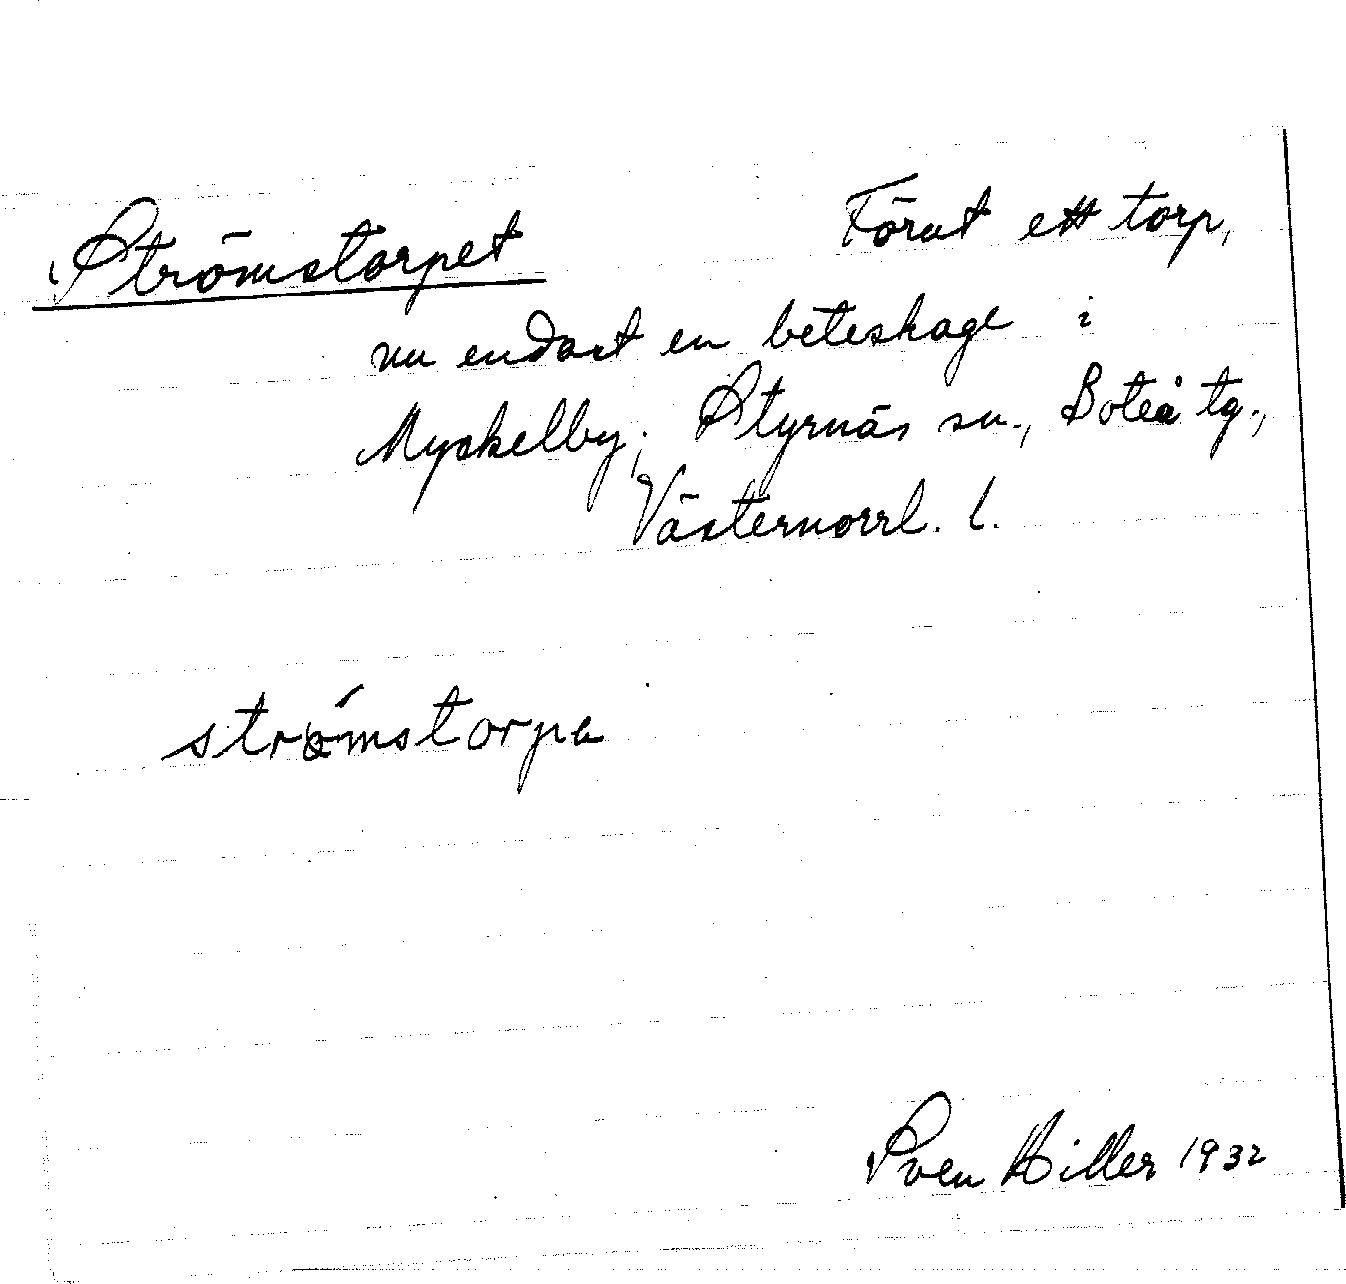 Strömstorpet Förut ett torp,
nu endast en beteshage i
Myskelby, Styrnäs sn., Boteå tg.,
Västernorrl. l.
strömstorpa
Sven Hiller 1932